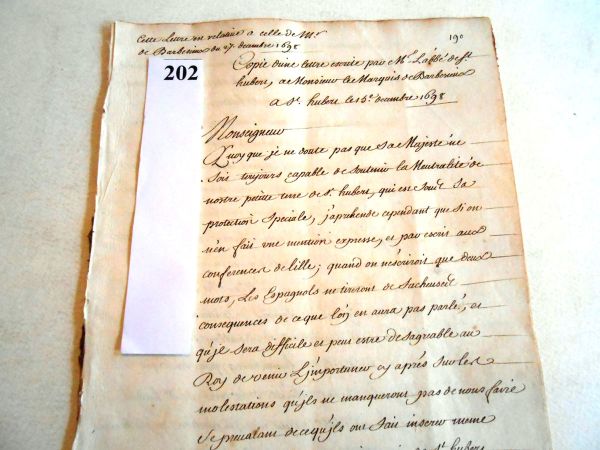 Cette Lettre est relative a celle de Mr
de Barbesieux du 27. decembre 1698
190
202
Copie d'une lettre escrite par Mr. L'abbé de St.
hubert, a Monsieur le Marquis de Barbesieux
a St. hubert le 15e. decembre 1698
Monseigneur
Quoy que je ne doute pas que Sa Majesté ne
Soit toujours capable de Soutenir la Neutralité de
nostre petite terre de St. hubert, qui est Sous Sa
protection Speciale, j'aprehende cependant que Si on
n'en fait une mention expresse, et par escrit aux
conferences de lille; quand on n'escriroit que deux
mots, Les Espagnols ne tirent de facheuses
consequences de ce que l'on en aura pas parlé, et
qu'jl Sera difficile et peut estre desagreable au
Roy de venir L'jmportuner cy aprés Sur les
molestations qu'jls ne manqueront pas de nous faire
Se prevalant de ce qu'jls ont fait inserer meme
St. hubert